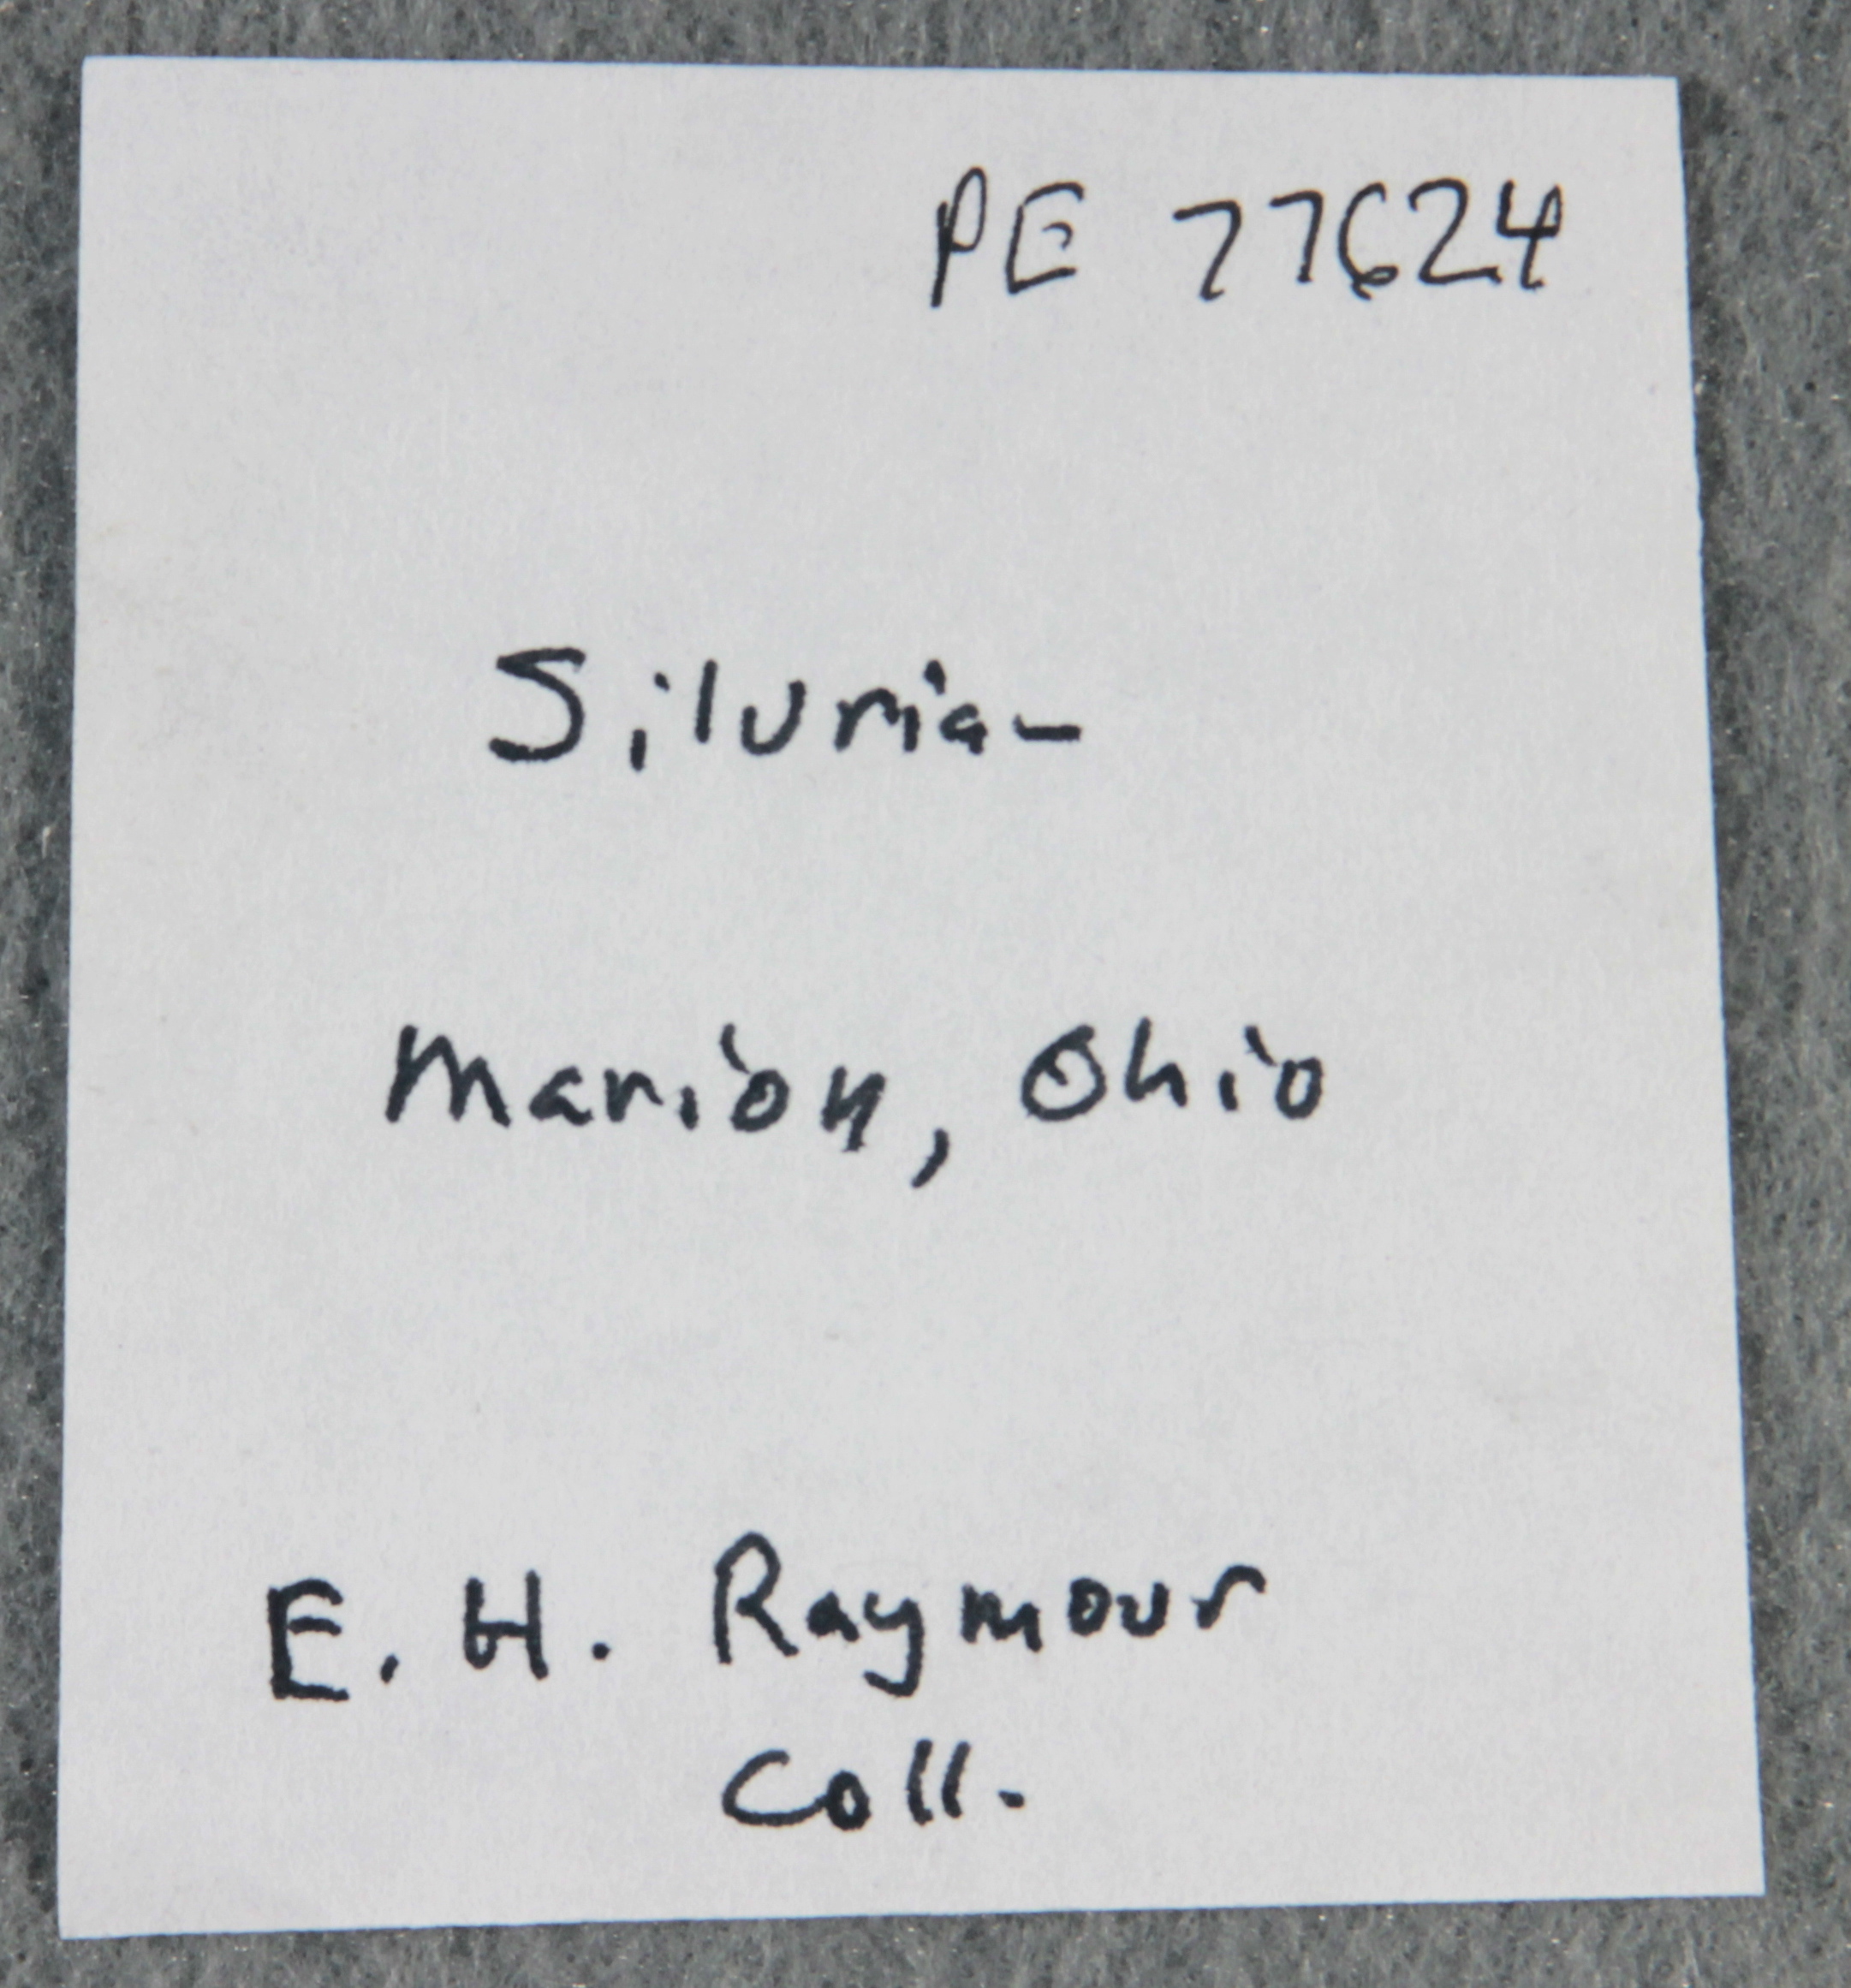 PE 77624
Silurian
Marion, Ohio
E. H. Raymour
Coll.